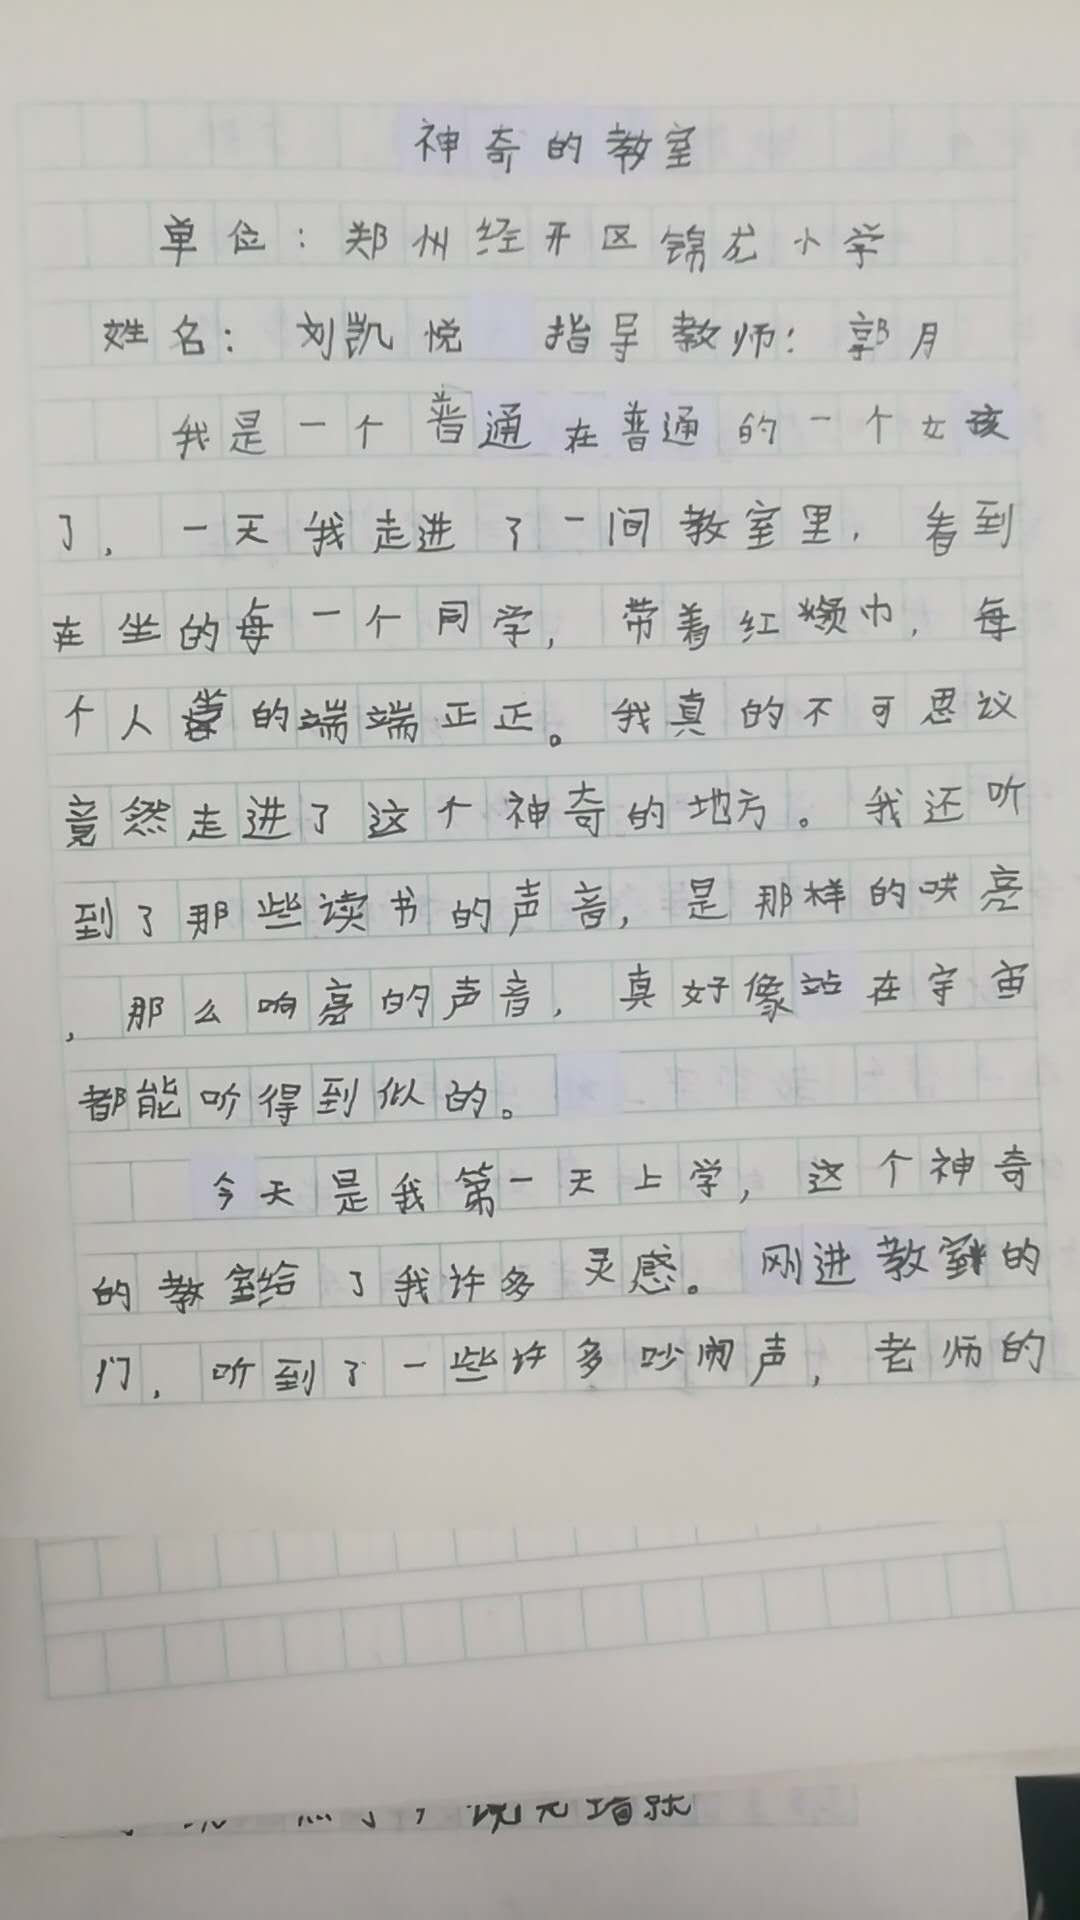 神奇的教室
单位：郑州经开区锦龙小学
姓名：刘凯悦 指导教师：郭月
我是一个普通在普通的一个女孩
了，一天我走进了一间教室里，看到
在坐的每一个同学，带着红领巾，每
个人坐的端端正正。我真的不可思议
竟然走进了这个神奇的地方。我还听
到了那些读书的声音，是那样的哄亮
，那么响亮的声音，真好像站在宇宙
都能听得到似的。
今天是我第一天上学，这个神奇
的教室给了我许多灵感。刚进教室的
门，听到了一些许多吵闹声，老师的